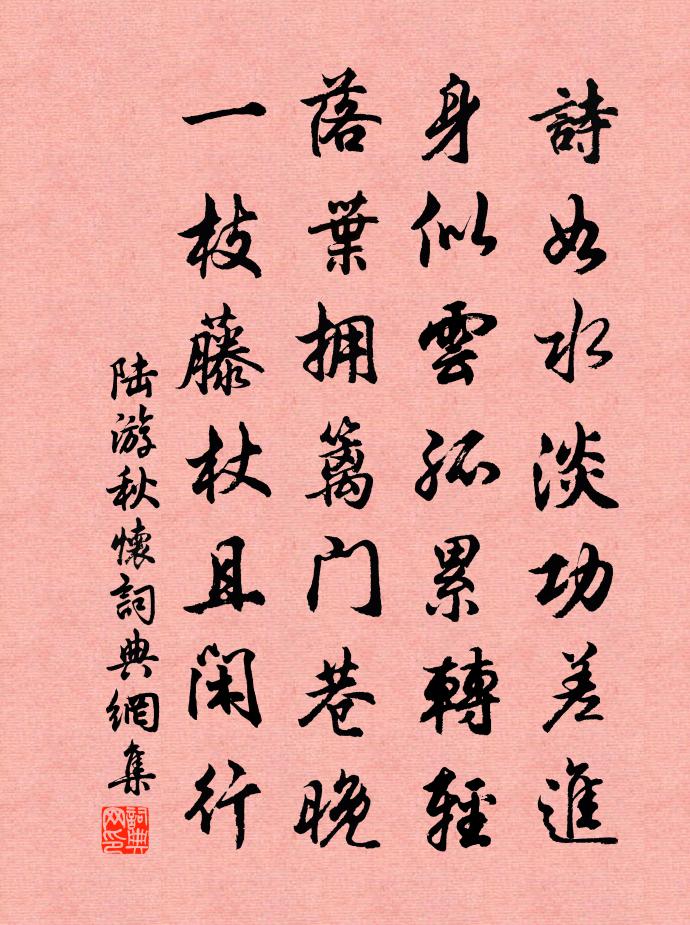 詩如水淡功差進
身似雲孤累轉輕
落葉擁籬門巷晚
一枝藤杖且閑行
陆游秋懷詞典網集
詞典网印